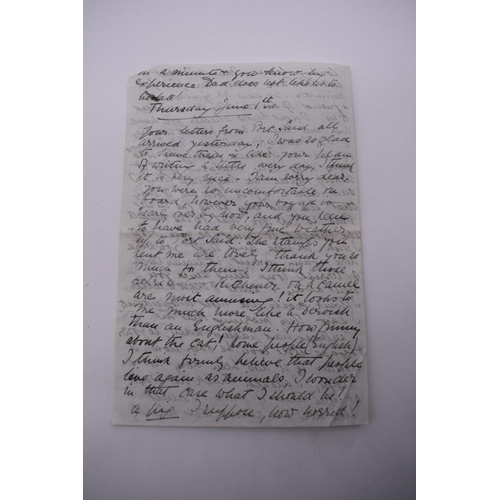 in a minute & you know by
experience Dad does not like us to
be late!
Thursday June 1st
Your letters from Port Said all
arrived yesterday, I was so glad
to have them & like your plan
of writing a little every day. I think
it is very nice. I am sorry dear
you were so uncomfortable on
board, however your voyage is
nearly over by now, and you seem
to have had very fine weather
up to Port Said. The stamps you
sent me are lovely, thank you so
much for them; I think those
Kitchener on a Camel
are most amusing! it looks to
me much more like a Dervish
than an Englishman. How funny
about the cat! Some people (English)
I think firmly believe that people
live again as animals, I wonder
in that case what I should be!
a pig I suppose, how horrid!